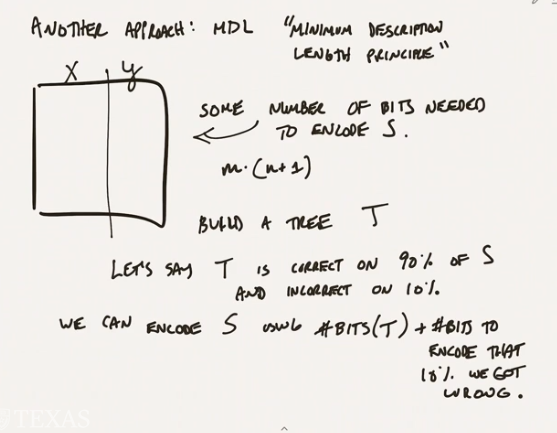 ANOTHER APPROACH: MDL "MINIMUM DESCRIPTION
LENGTH PRINCIPLE"
X y
SOME NUMBER OF BITS NEEDED
TO ENCODE S.
m·(n+1)
BUILD A TREE T
LET'S SAY T IS CORRECT ON 90% OF S
AND INCORRECT ON 10%.
WE CAN ENCODE S USING #BITS(T) + #BITS TO
ENCODE THAT
10% WE GOT
WRONG.
TEXAS